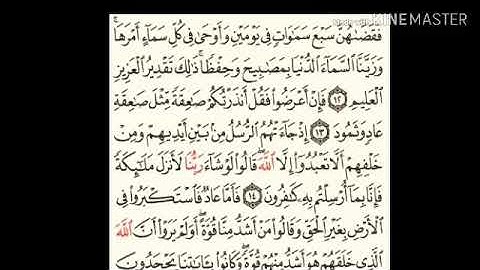 KINEMASTER
فَقَضَىٰهُنَّ سَبۡعَ سَمَٰوَاتٖ فِي يَوۡمَيۡنِ وَأَوۡحَىٰ فِي كُلِّ سَمَآءٍ أَمۡرَهَاۚ
وَزَيَّنَّا ٱلسَّمَآءَ ٱلدُّنۡيَا بِمَصَٰبِيحَ وَحِفۡظٗاۚ ذَٰلِكَ تَقۡدِيرُ ٱلۡعَزِيزِ
ٱلۡعَلِيمِ ١٢ فَإِنۡ أَعۡرَضُواْ فَقُلۡ أَنذَرۡتُكُمۡ صَٰعِقَةٗ مِّثۡلَ صَٰعِقَةِ
عَادٖ وَثَمُودَ ١٣ إِذۡ جَآءَتۡهُمُ ٱلرُّسُلُ مِنۢ بَيۡنِ أَيۡدِيهِمۡ وَمِنۡ
خَلۡفِهِمۡ أَلَّا تَعۡبُدُوٓاْ إِلَّا ٱللَّهَۖ قَالُواْ لَوۡ شَآءَ رَبُّنَا لَأَنزَلَ مَلَٰٓئِكَةٗ
فَإِنَّا بِمَآ أُرۡسِلۡتُم بِهِۦ كَٰفِرُونَ ١٤ فَأَمَّا عَادٞ فَٱسۡتَكۡبَرُواْ فِي
ٱلۡأَرۡضِ بِغَيۡرِ ٱلۡحَقِّ وَقَالُواْ مَنۡ أَشَدُّ مِنَّا قُوَّةًۖ أَوَلَمۡ يَرَوۡاْ أَنَّ ٱللَّهَ
ٱلَّذِي خَلَقَهُمۡ هُوَ أَشَدُّ مِنۡهُمۡ قُوَّةٗۖ وَكَانُواْ بِـَٔايَٰتِنَا يَجۡحَدُونَ